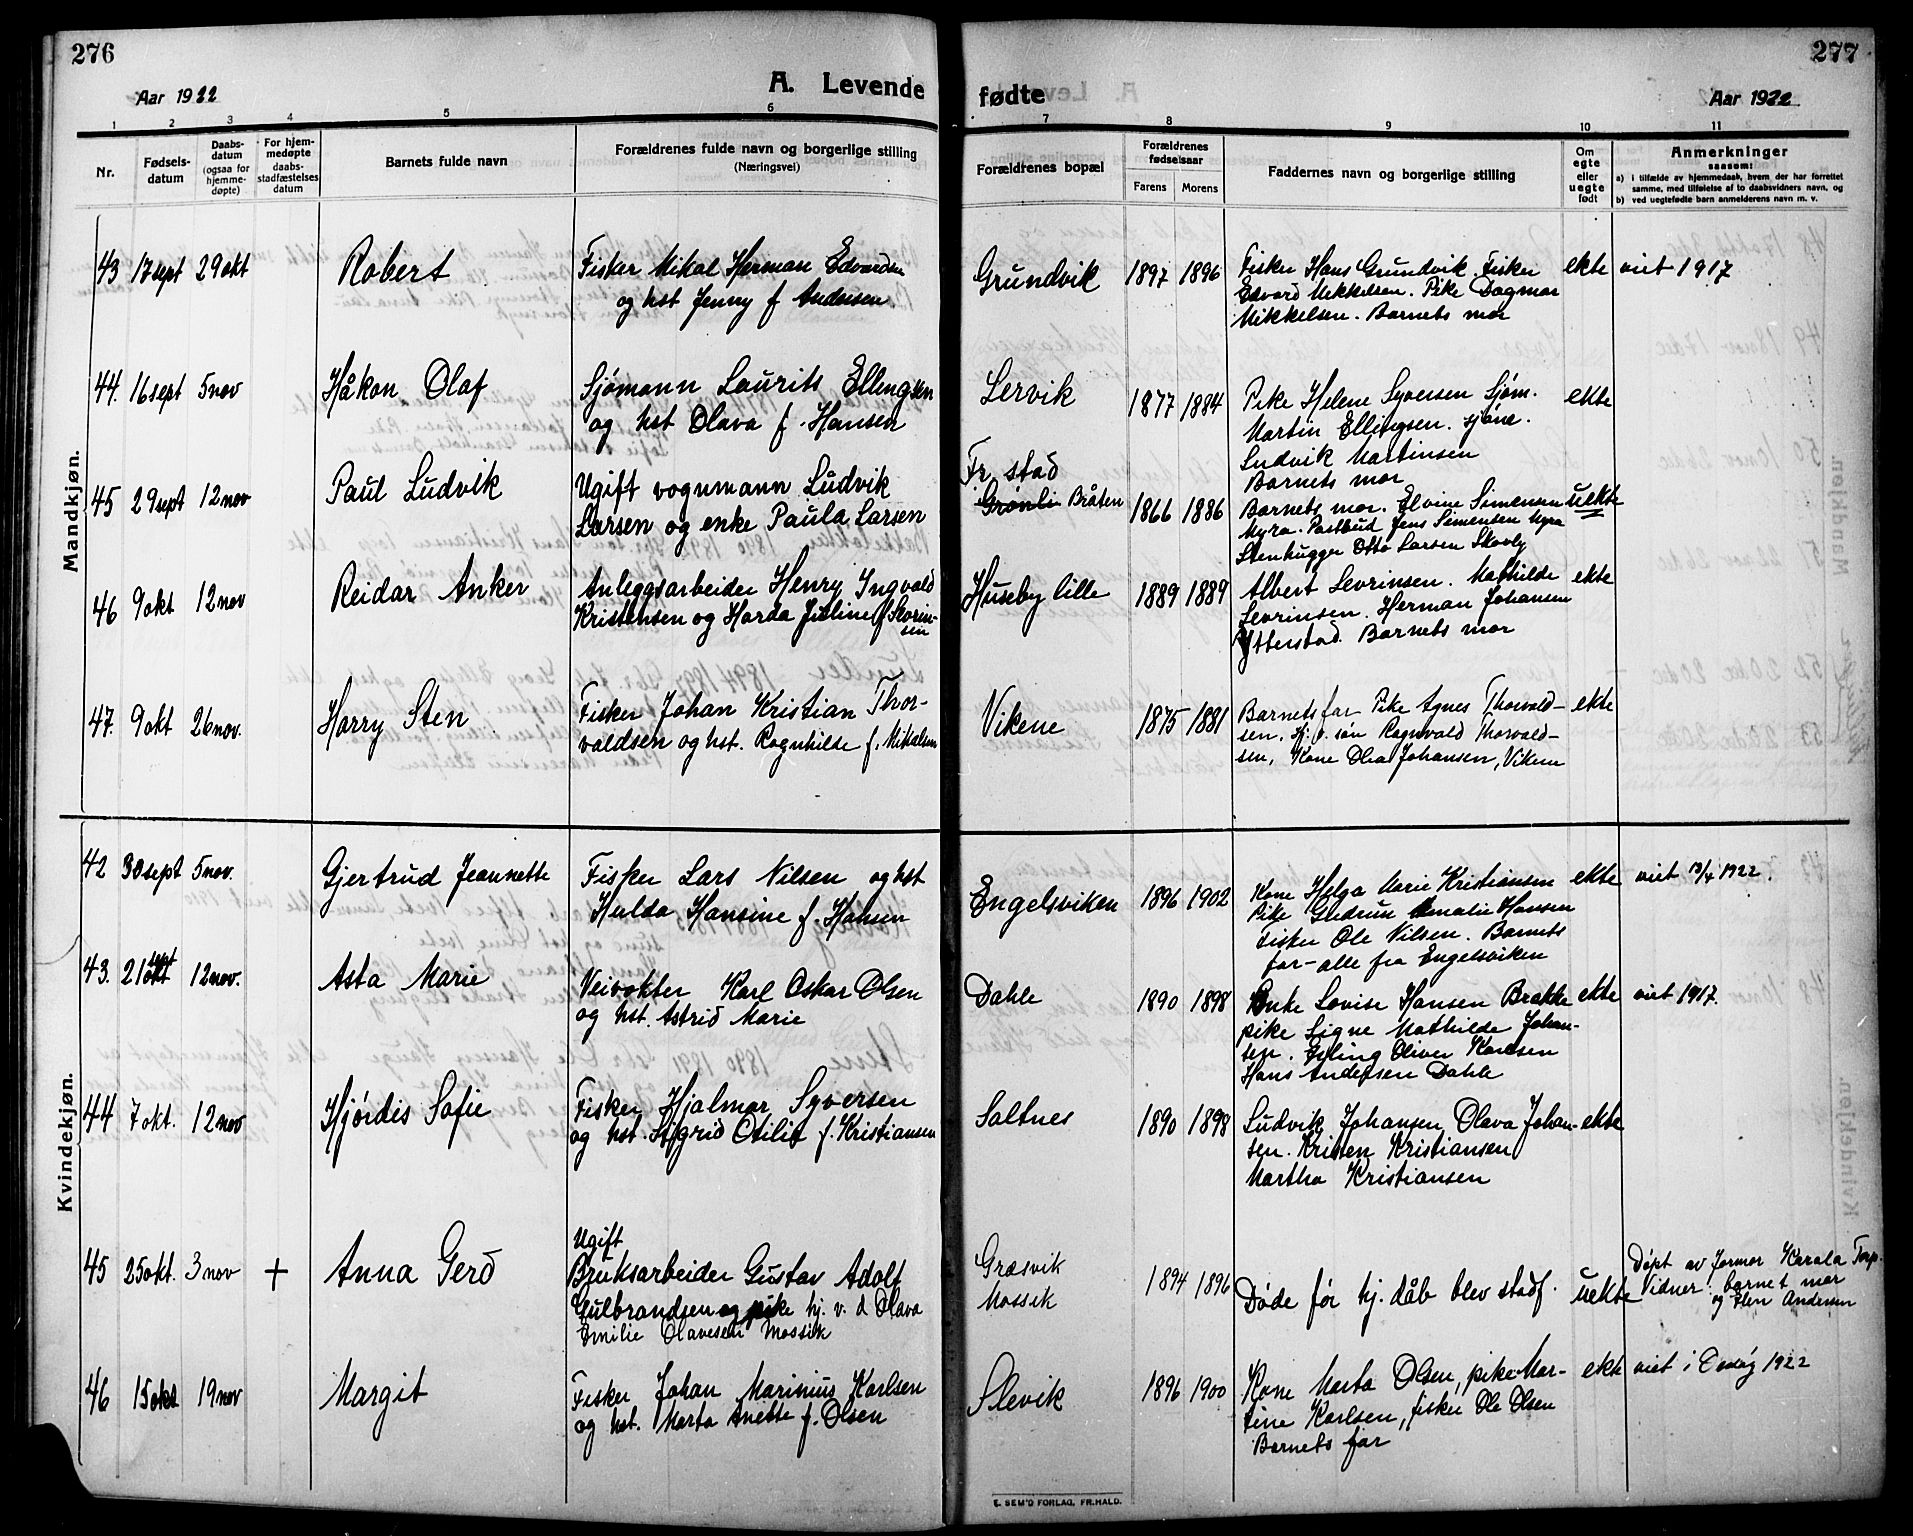 276
277
A. Levende
fødte
Aar 1922
Aar 1922
1 2 3 4 5 6 7 8 9 10 11
Nr.
Fødsels-
datum
Daabs-
datum
(ogsaa for
hjemme-
døpte)
For hjem-
medøpte
daabs-
stadfæstelses
datum
Barnets fulde navn
Forældrenes fulde navn og borgerlige stilling
(Næringsvei)
Forældrenes bopæl
Forældrenes
fødselsaar
Farens Morens
Faddernes navn og borgerlige stilling
Om
egte
eller
uegte
født
Anmerkninger
saasom:
a) i tilfælde av hjemmedaab, hvem der har forrettet
samme, med tilføielse af to daabsvidners navn, og
b) ved uegtefødte barn anmelderens navn m. v.
Mandkjøn.
43 17 sept 29 okt
Robert
Fisker Mikal Herman Edvardsen
og hst Jenny f Andersen
Grundvik
1897 1896
Fisker Hans Grundvik Fisker
Edvard Mikkelsen. Pike Dagmar
Mikkelsen. Barnets mor
ekte
viet 1917
44. 16 sept 5 nov
Håkon Olaf
Sjømann Laurits Ellingsen
og hst Olava f. Hansen
Lervik
1877 1884
Pike Helene Syversen Sjøm.
Martin Ellingsen. sjøne.
Ludvik Martinsen
Barnets mor
ekte
45 29 sept 12 nov
Paul Ludvik
Ugift vognmann Ludvik
Larsen og enke Paula Larsen
Fr. stad
Grønli Bråten
1866 1886
Barnets mor. Elvine Simensen
Myra. Postbud Jens Simensen Myra
Stenhugger Otto Larsen Skovly
uekte
46 9 okt 12 nov
Reidar Anker
Anleggsarbeider Henry Ingvald
Kristensen og Harda f
Huseby lille
1889 1889
Albert Sevrinsen. Mathilde
Sevrinsen. Herman Johansen
Ytterstad. Barnets mor
ekte
47. 9 okt 26 nov.
Harry Sten
Fisker Johan Kristian Thor-
valdsen og hst. Ragnhilde f. Mikalsen
Vikene
1875 1881
Barnets far Pike Agnes Thorvald-
sen. hj. v. søn Ragnvald Thorvald-
sen, Kone Olea Johansen, Vikene
ekte
Kvindekjøn.
42 30 sept 5 nov.
Gjertrud Jeannette
Fisker Lars Nilsen og hst
Hulda Hansine f. Hansen
Engelsviken
1896 1902
Kone Helga Marie Kristiansen
Pike Gudrun Amalie Hansen
Fisker Ole Nilsen. Barnets
far - alle fra Engelsviken
ekte
viet 13/4 1922.
43. 21 okt sept 12 nov.
Asta Marie
Veivokter Karl Oskar Olsen
og hst. Astrid Marie
Dahle
1890 1898
Enke Lovise Hansen Brække
pike Signe Mathilde Johan-
sen. Erling Oliver Karlsen
Hans Andersen Dahle
ekte
viet 1917.
44 7 okt. 12 nov
Hjørdis Sofie
Fisker Hjalmar Syversen
og hst. Sigrid Otilie f. Kristiansen
Saltnes
1890 1898
Ludvik Johansen Olava Johan-
sen. Kristen Kristiansen
Martha Kristiansen
ekte
45 25 okt. 3 nov +
Anna Gerd
Ugift
Bruksarbeider Gustav Adolf
Gulbrandsen og pike hj. v. d Olava
Emilie Olavesen Mossik
Græsvik
Mossik
1894 1896
Døde før hj. dåb blev stadf.
uekte
Døpt av Jormor Karala Torp.
Vidner: barnet mor
og Elen Andersen
46 15 okt 19 nov
Margit
Fisker Johan Marinius Karlsen
og hst. Marta Anette f. Olsen
Slevik
1896 1900
Kone Marta Olsen, pike Mar-
tine Karlsen, fisker Ole Olsen
Barnets far
ekte
viet i Onsøy 1922
E. SEM'S FORLAG, FR.HALD.